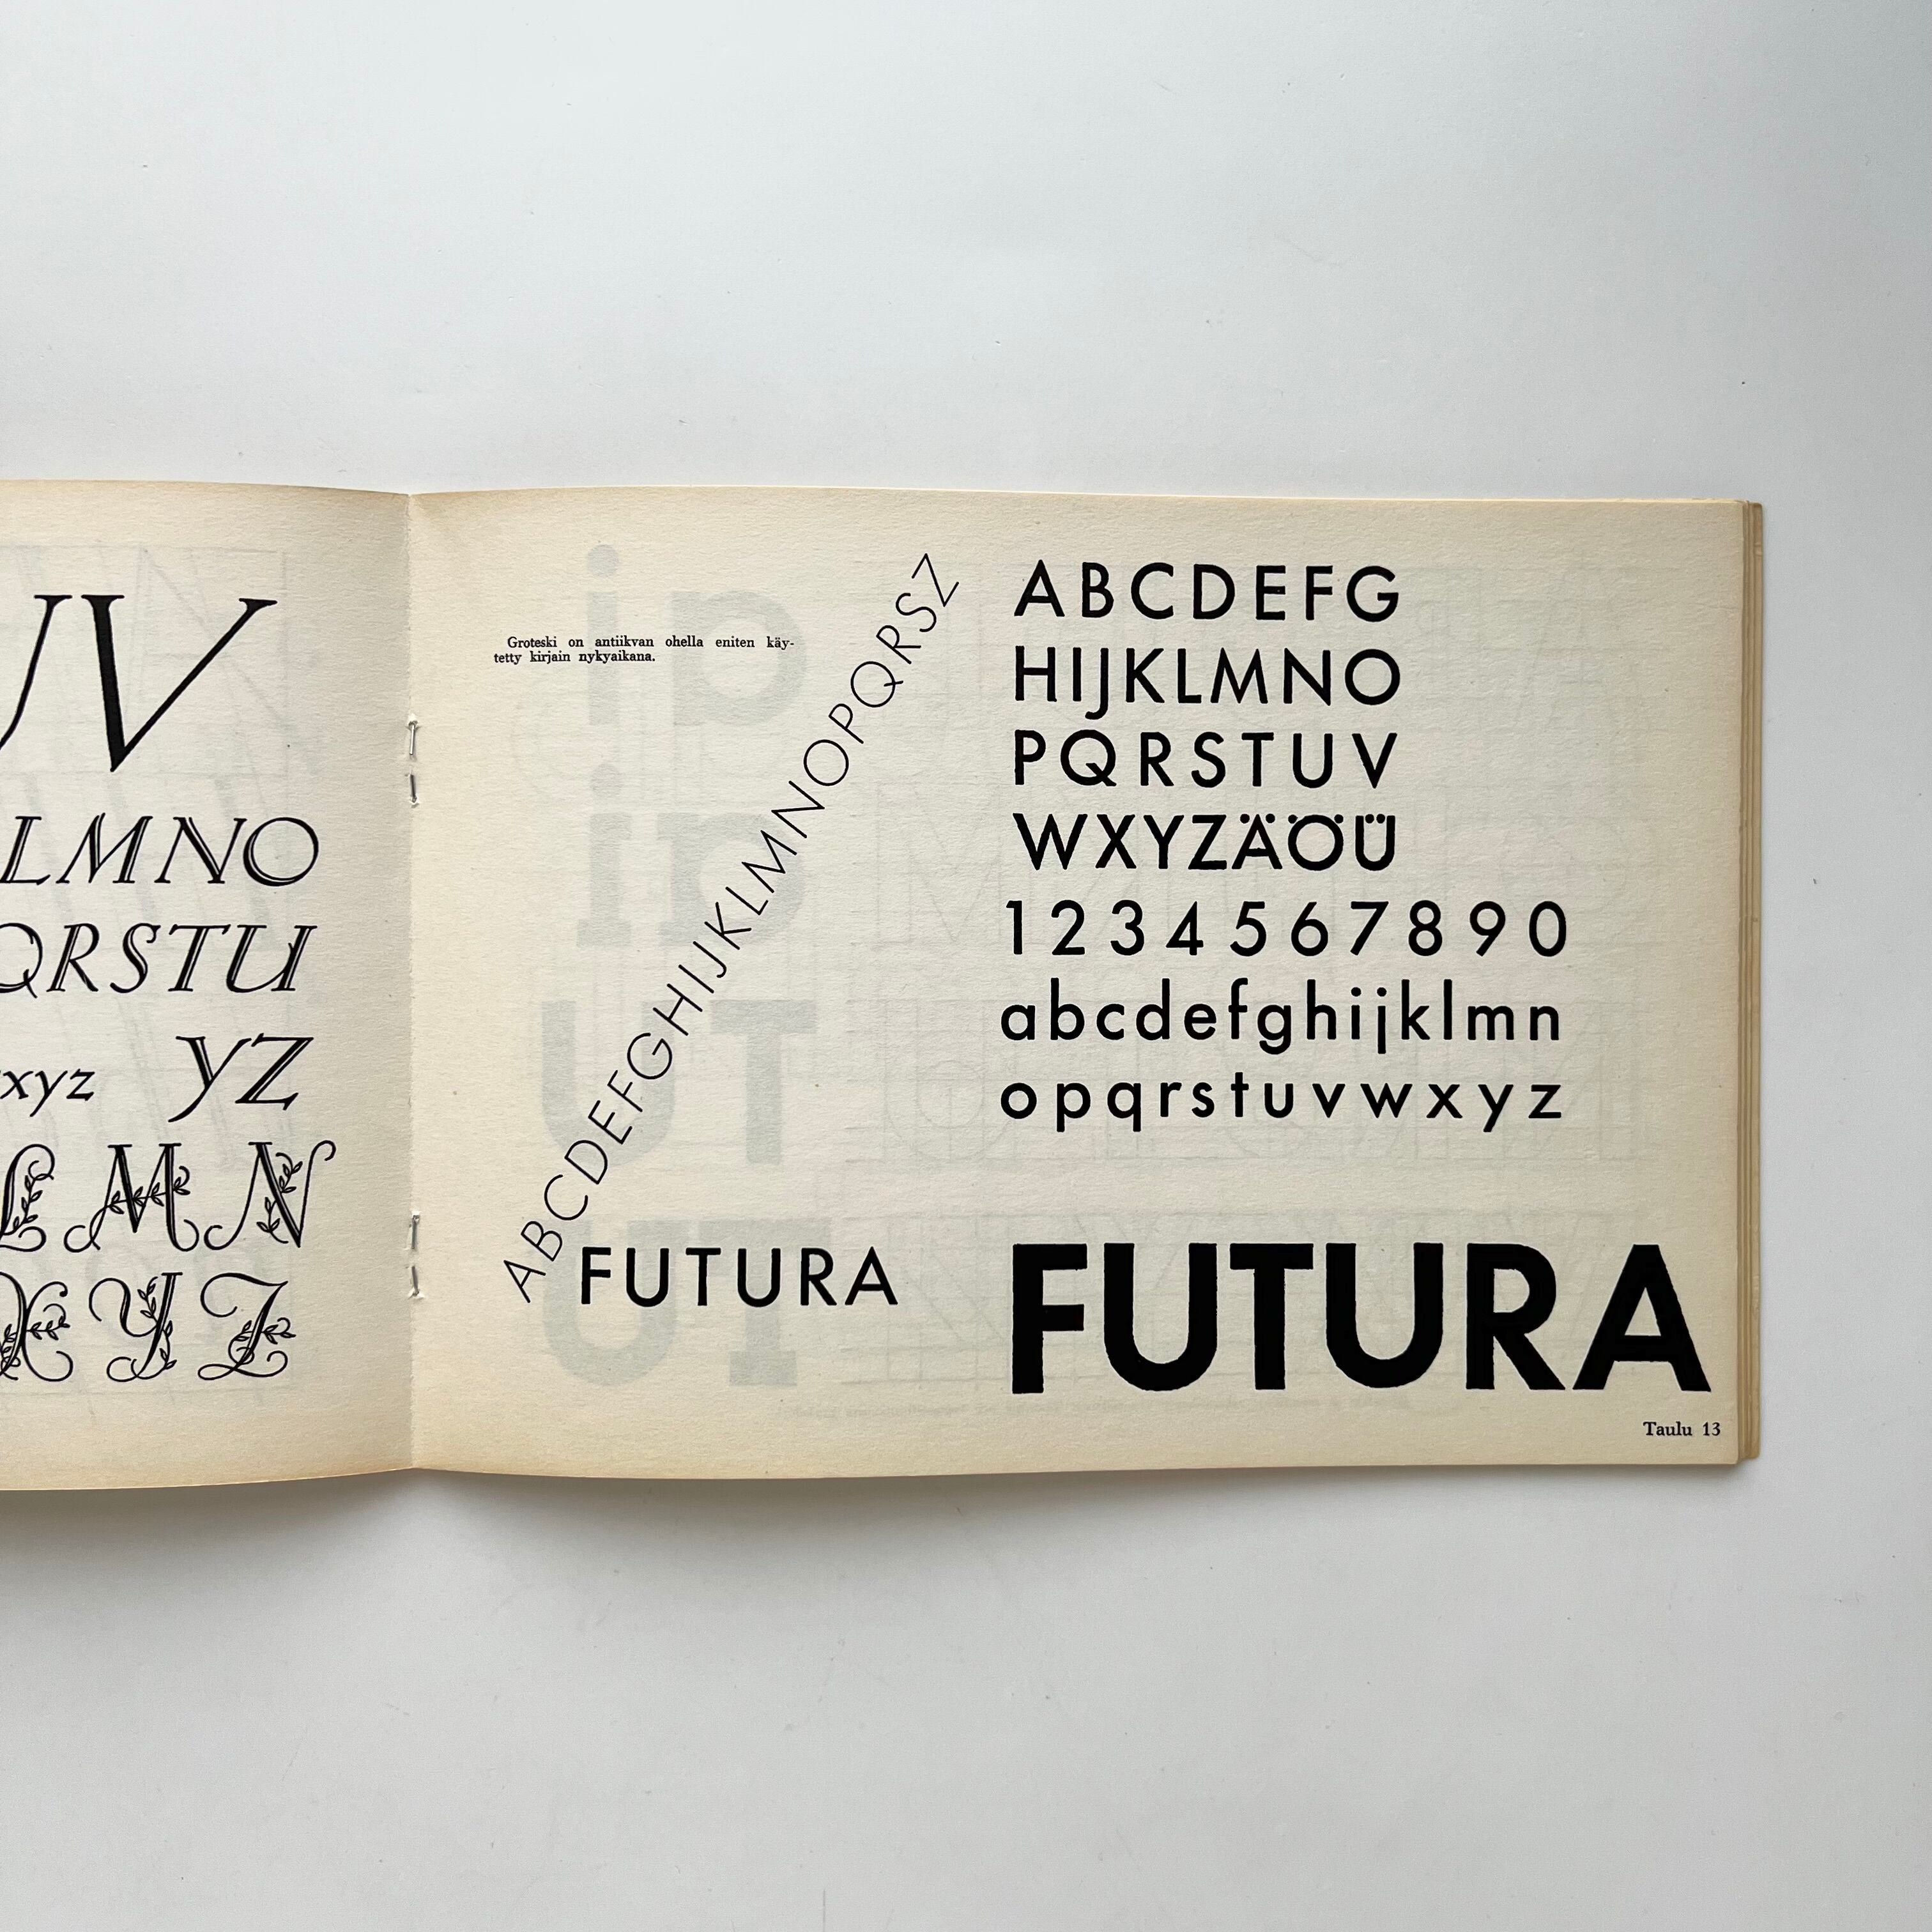 UV
LMNO
QRSTU
xyz YZ
LMN
XYZ
Groteski on antiikvan ohella eniten käy-
tetty kirjain nykyaikana.
ABCDEFGHIJKLMNOPQRSZ
FUTURA
ABCDEFG
HIJKLMNO
PQRSTUV
WXYZÄÖÜ
1234567890
abcdefghijklmn
opqrstuvwxyz
FUTURA
Taulu 13